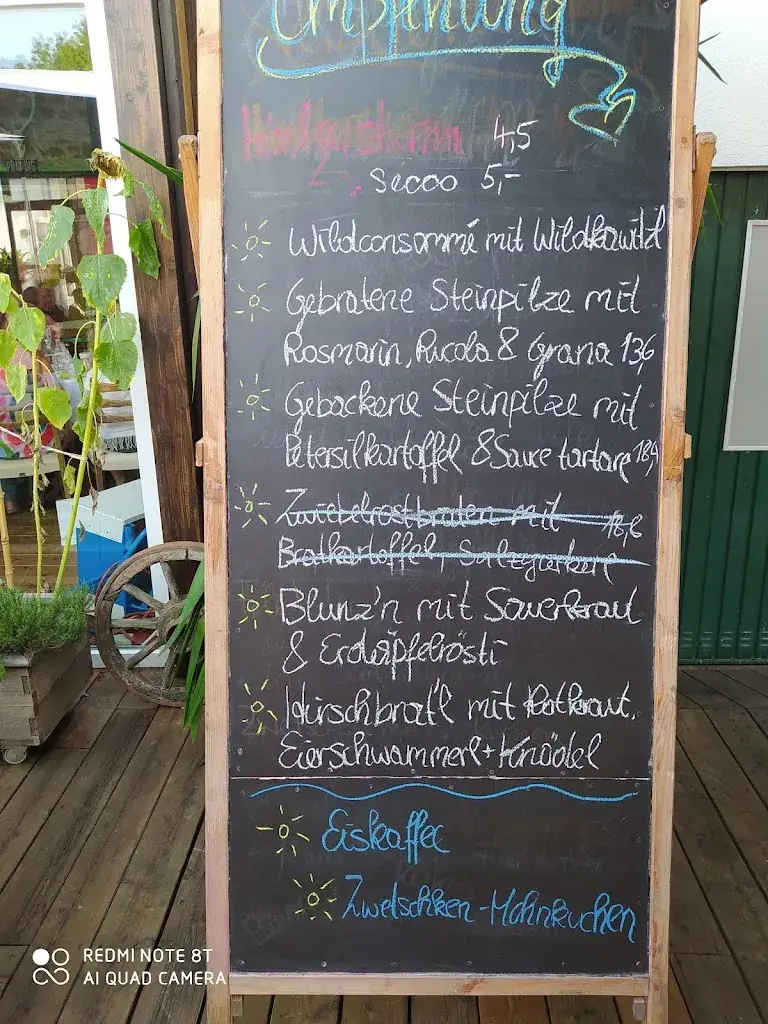 Empfehlung
4,5
Secco 5,-
Wildconsommé mit Wildkawitzl
Gebratene Steinpilze mit
Rosmarin, Rucola & Grana 13,6
Gebackene Steinpilze mit
Petersilkartoffel & Sauce tartare 18,4
Zwiebelrostbraten mit 18,6
Bratkartoffel, Salzgurkerl
Blunz'n mit Sauerkraut
& Erdäpfelrösti
Hirschbrat'l mit Rotkraut,
Eierschwammerl + Knödel
Eiskaffee
Zwetschken-Mohnkuchen
REDMI NOTE 8T
AI QUAD CAMERA